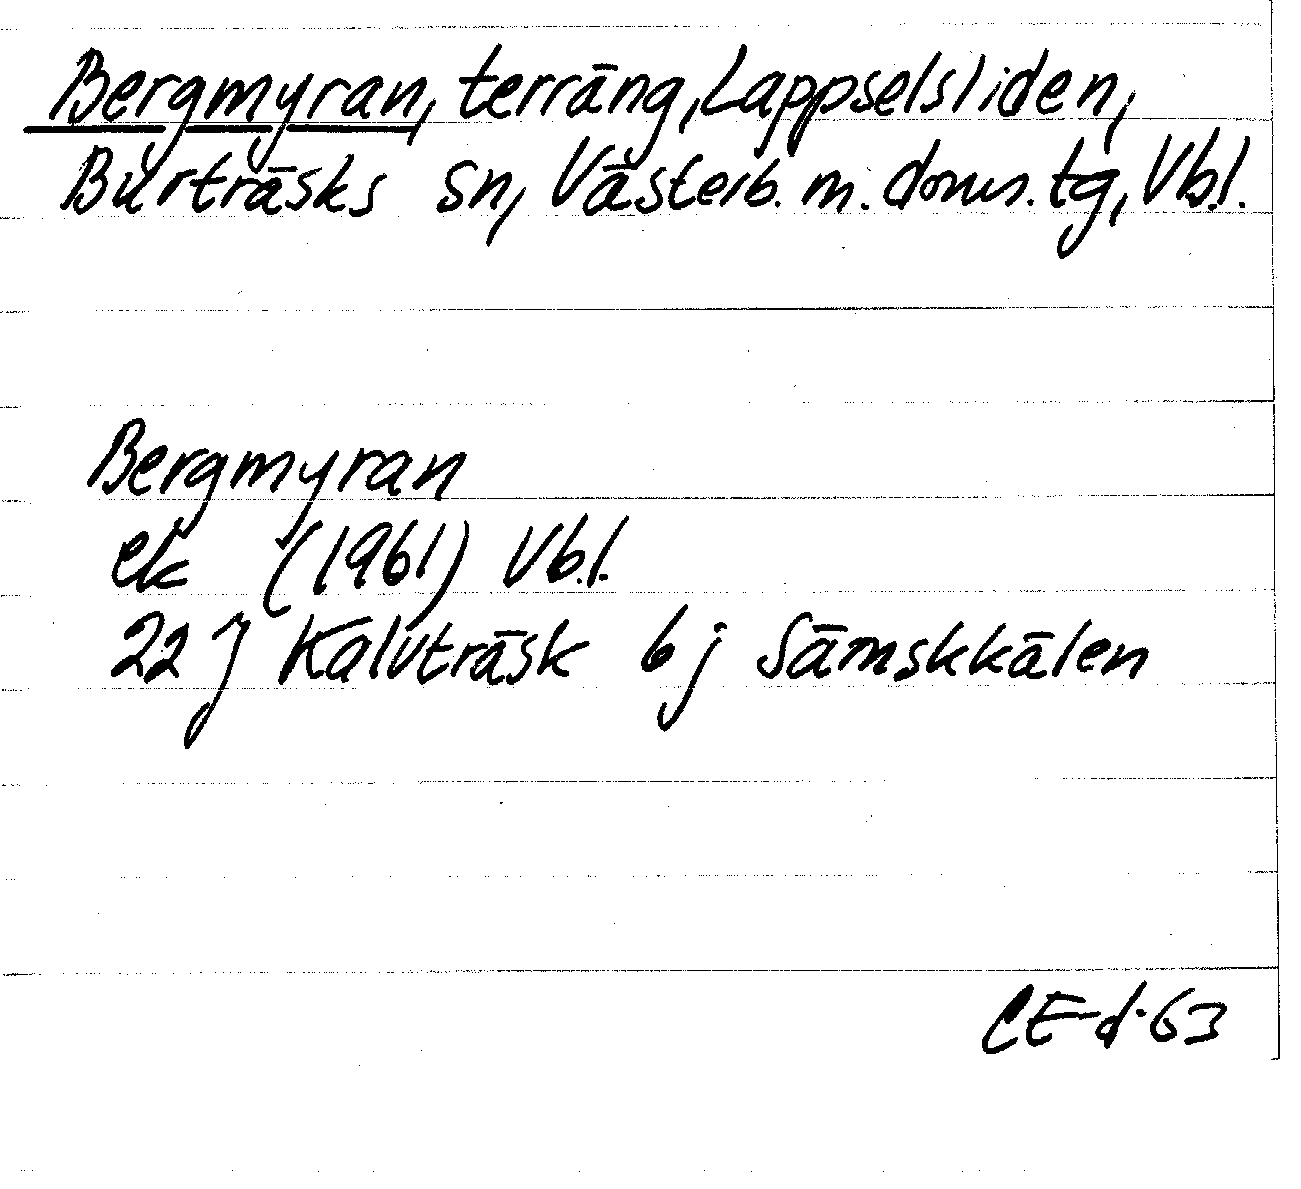 Bergmyran, terräng, Lappselsliden,
Burträsks sn, Västerb. m. doms. tg, Vb.l.
Bergmyran
ek (1961) Vb.l.
22 J Kalvträsk 6 j Sämskkälen
CE-d-63